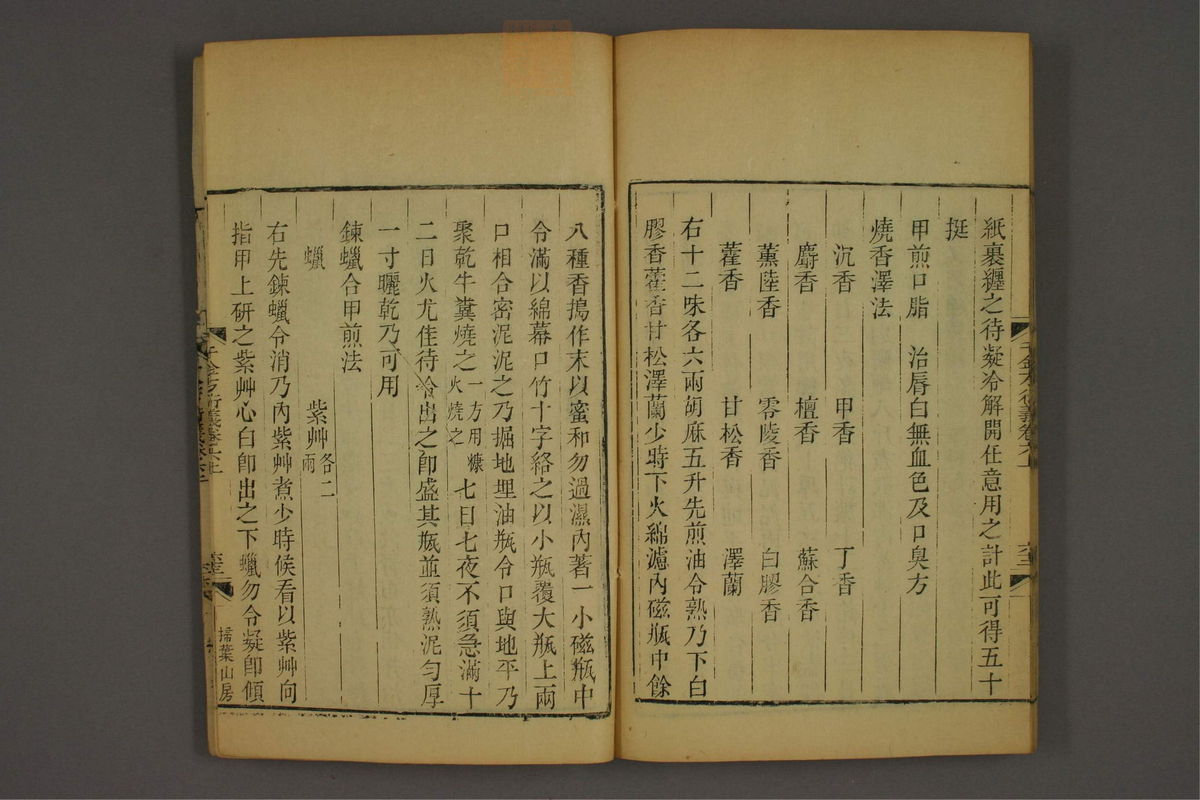 紙裹纒之待凝冷解開任意用之計此可得五十
挺
甲煎口脂　治唇白無血色及口臭方
燒香澤法
沉香　甲香　丁香
麝香　檀香　蘇合香
薰陸香　零陵香　白膠香
藿香　甘松香　澤蘭
右十二味各六兩胡麻五升先煎油令熟乃下白
膠香藿香甘松澤蘭少時下火綿濾內磁瓶中餘
八種香搗作末以蜜和勿過濕內著一小磁瓶中
令滿以綿幕口竹十字絡之以小瓶覆大瓶上兩
口相合密泥泥之乃掘地埋油瓶令口與地平乃
聚乾牛糞燒之一方用糠火燒之七日七夜不須急滿十
二日火尤佳待冷出之卽盛其瓶並須熟泥勻厚
一寸曬乾乃可用
鍊蠟合甲煎法
蠟　紫艸各二兩
右先鍊蠟令消乃內紫艸煮少時候看以紫艸向
指甲上研之紫艸心白卽出之下蠟勿令凝卽傾
千金方衍義卷六上
掃葉山房